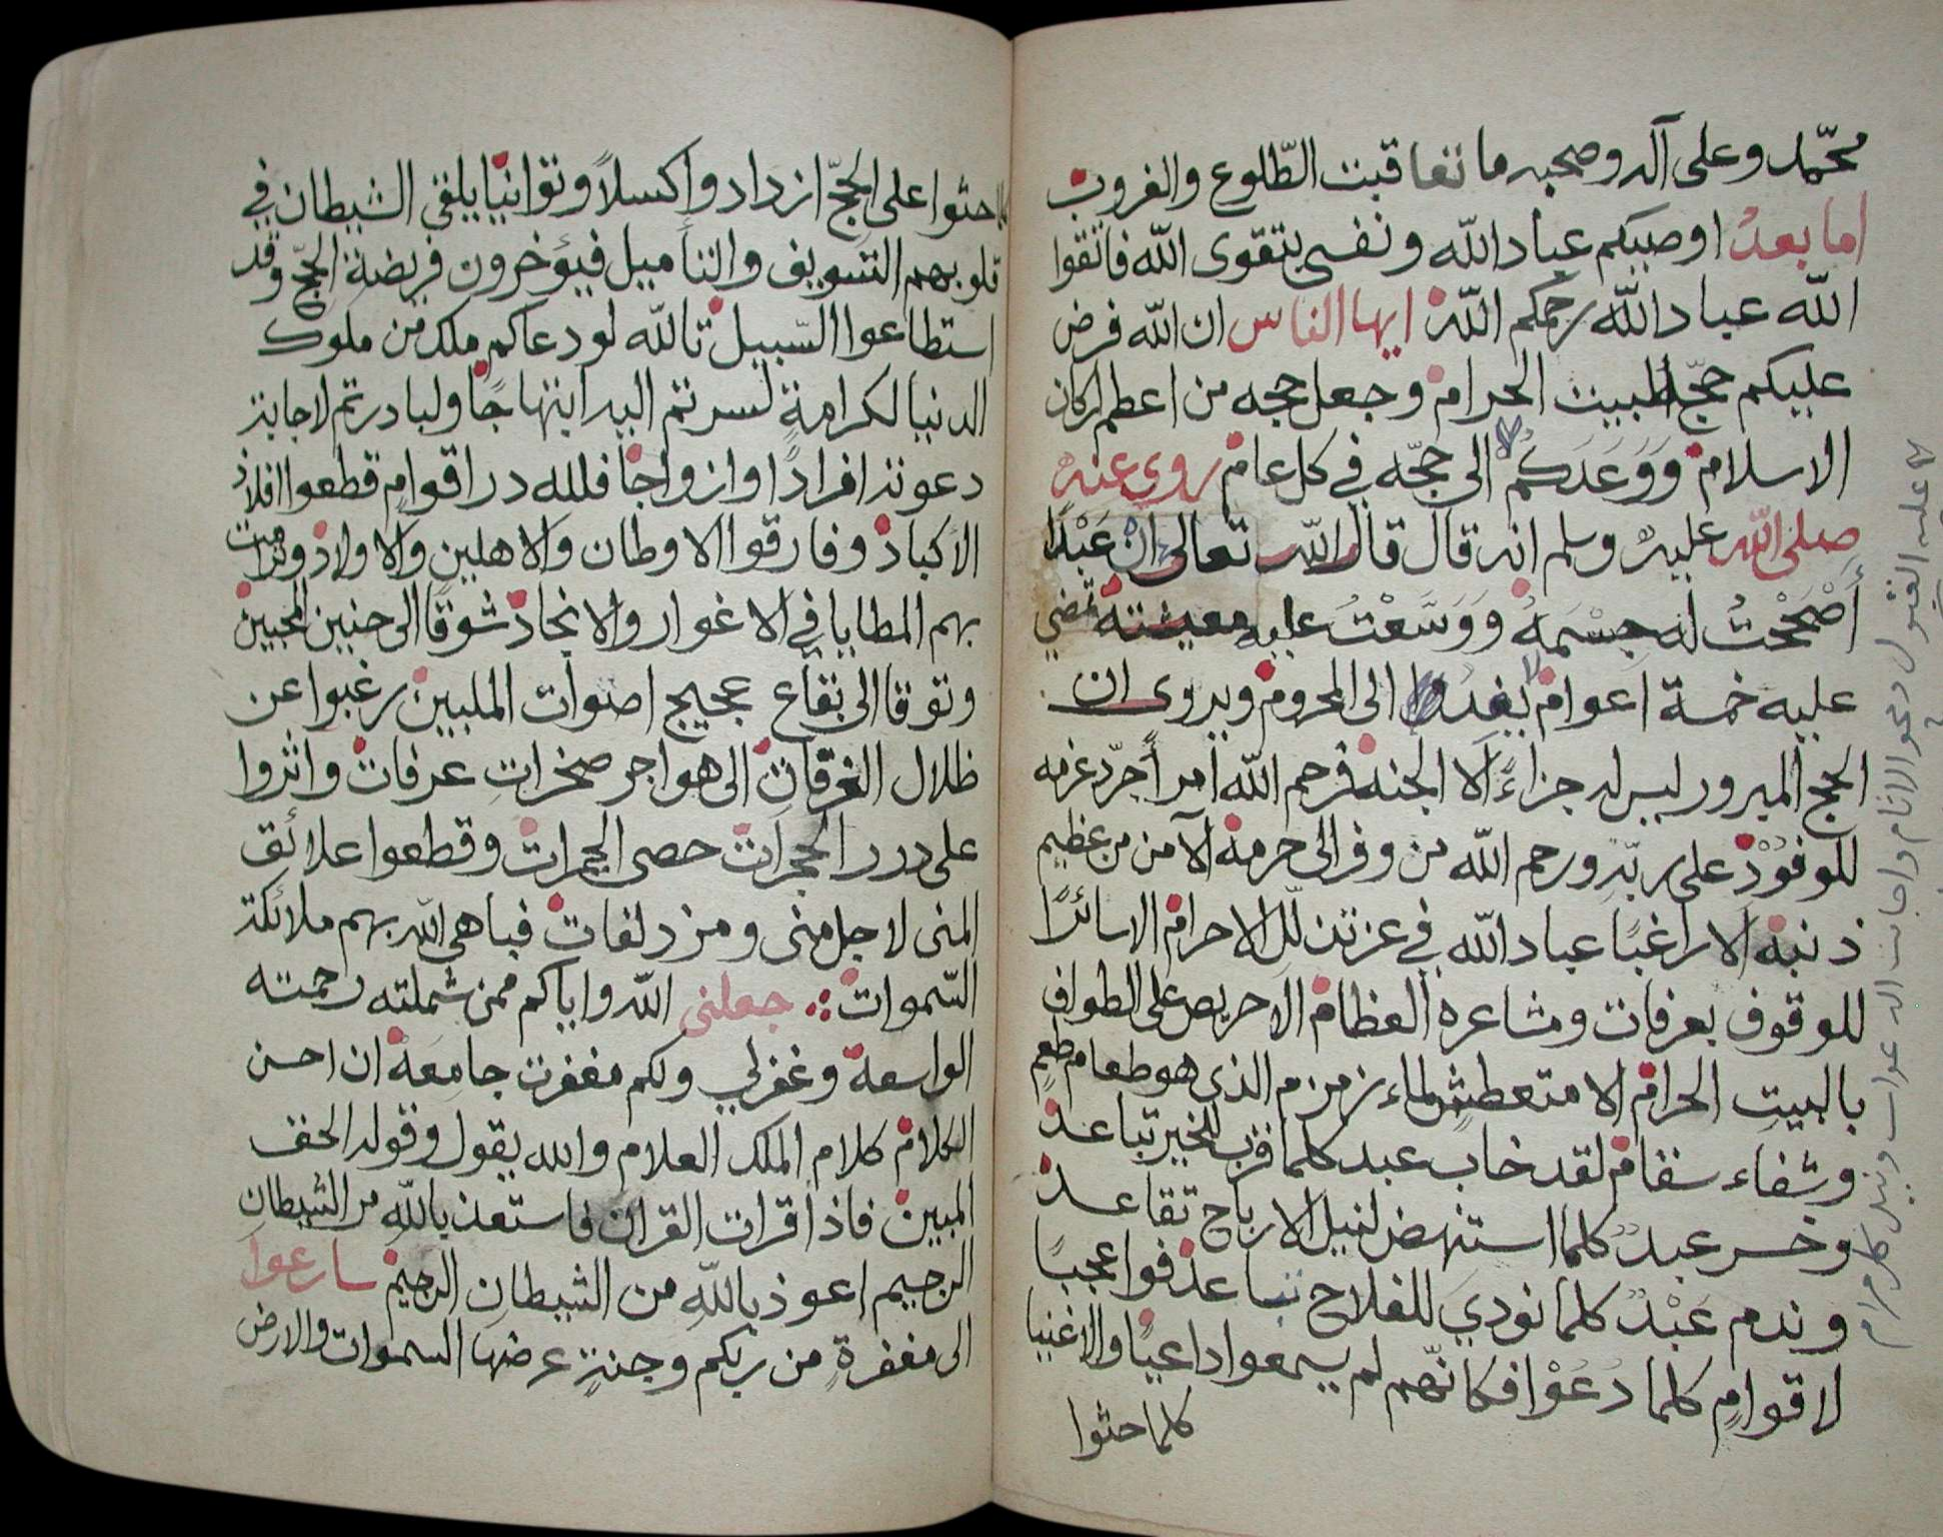 محمّد وعلى آله وصحبه ما تعاقبت الطّلوع والغروب
اما بعدُ اوصيكم عباد الله ونفسي بتقوى الله فاتقوا
الله عباد الله رحمكم الله ايها الناس ان الله فرض
عليكم حجّ البيت الحرام وجعل حجه من اعظم اركان
الاسلام وَوَعَدَكُم الى حجّه في كل عام روي عنه
صلى الله عليه وسلم انه قال قال الله تعالى انْ عَبْدًا
أَصْحَحْتُ له جِسْمَهُ وَوَسَّعْتُ عليه معيشته تمضي
عليه خمسة اعوام لا يفد الى المحروم ويروى ان
الحج المبرور ليس له جزاءً الا الجنة فرحم الله امرأ جرّد عزمه
للوفُوْدْ على ربّه ورحم الله من وفر الى حرمه الآمن من عظيم
ذنبه الا راغبًا عباد الله في عزته لله الاحرام الا سائرًا
للوقوف بعرفات ومشاعره العظام الا حريص على الطواف
بالبيتِ الحرام الا متعطشٍ لماء زمزم الذي هو طعام طعمٍ
وشفاء سقام لقد خاب عبد كلما قرب للخير تباعد
وخسر عبدٌ كلما استنهض لنيل الارباح تقاعد
وندم عَبْدٌ كلما نودي للفلاح تباعد فواعجبًا
لاقوامٍ كلما دُعُوْا فكانّهم لم يسمعوا داعيًا والاغنيا
كلما حثوا
كلما حثوا على الحجّ ازدادوا كسلاً وتوانيًا يلقي الشيطان في
قلوبهم التسويف والتأميل فيؤخرون فريضة الحجّ وقد
استطاعوا السّبيل تالله لو دعاكم ملك من ملوك
الدنيا لكرامةٍ لسرتم اليه ابتهاجًا ولبادرتم لاجابة
دعوته افرادًا وازواجًا فلله در اقوامٍ قطعوا افلاذ
الاكباد وفارقوا الاوطان والاهلين والاولاد وترامت
بهم المطايا في الاغوار والانجاد شوقًا الى حنين المحبين
وتوقا الى بقاع عجيج اصوات الملبين رغبوا عن
ظلال الغرفات الى هواجر صخراتِ عرفات واثروا
على درر الحجرات حصى الجمرات وقطعوا علائق
المنى لاجل منى ومزدلفات فباهى الله بهم ملائكة
السّموات جعلني الله واياكم ممن شملته رحمته
الواسعة وغفر لي ولكم مغفرت جامعة ان احسن
الكلام كلام الملك العلام والله يقول وقوله الحق
المبين فاذا قرات القران فاستعذ بالله من الشيطان
الرجيم اعوذ بالله من الشيطان الرجيم سارعوا
الى مغفرةٍ من ربكم وجنةٍ عرضها السموات والارض